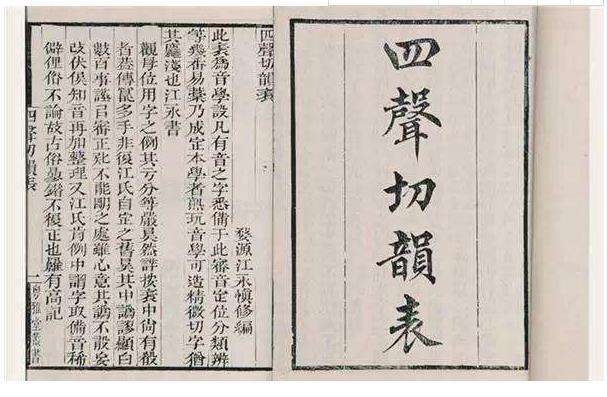 四聲切韻表
四聲切韻表
婺源江永慎修編
此表爲音學設凡有音之字悉備于此審音定位分類辨
等幾番易藁乃成定本學者熟玩音學可造精微切字猶
其麤淺也江永書
觀母位用字之例其亏分等嚴
者蓋傳多手非復江氏自定之舊其中譌謬顯白
數百事謹爲審正 不能明之處雖心意其譌不敢妄
改伏俟知音再加整理又江氏 例中謂字取備音稀
僻俚俗不論故古俗 不復正也 有高記
四聲切韻表
一
粤雅堂叢書